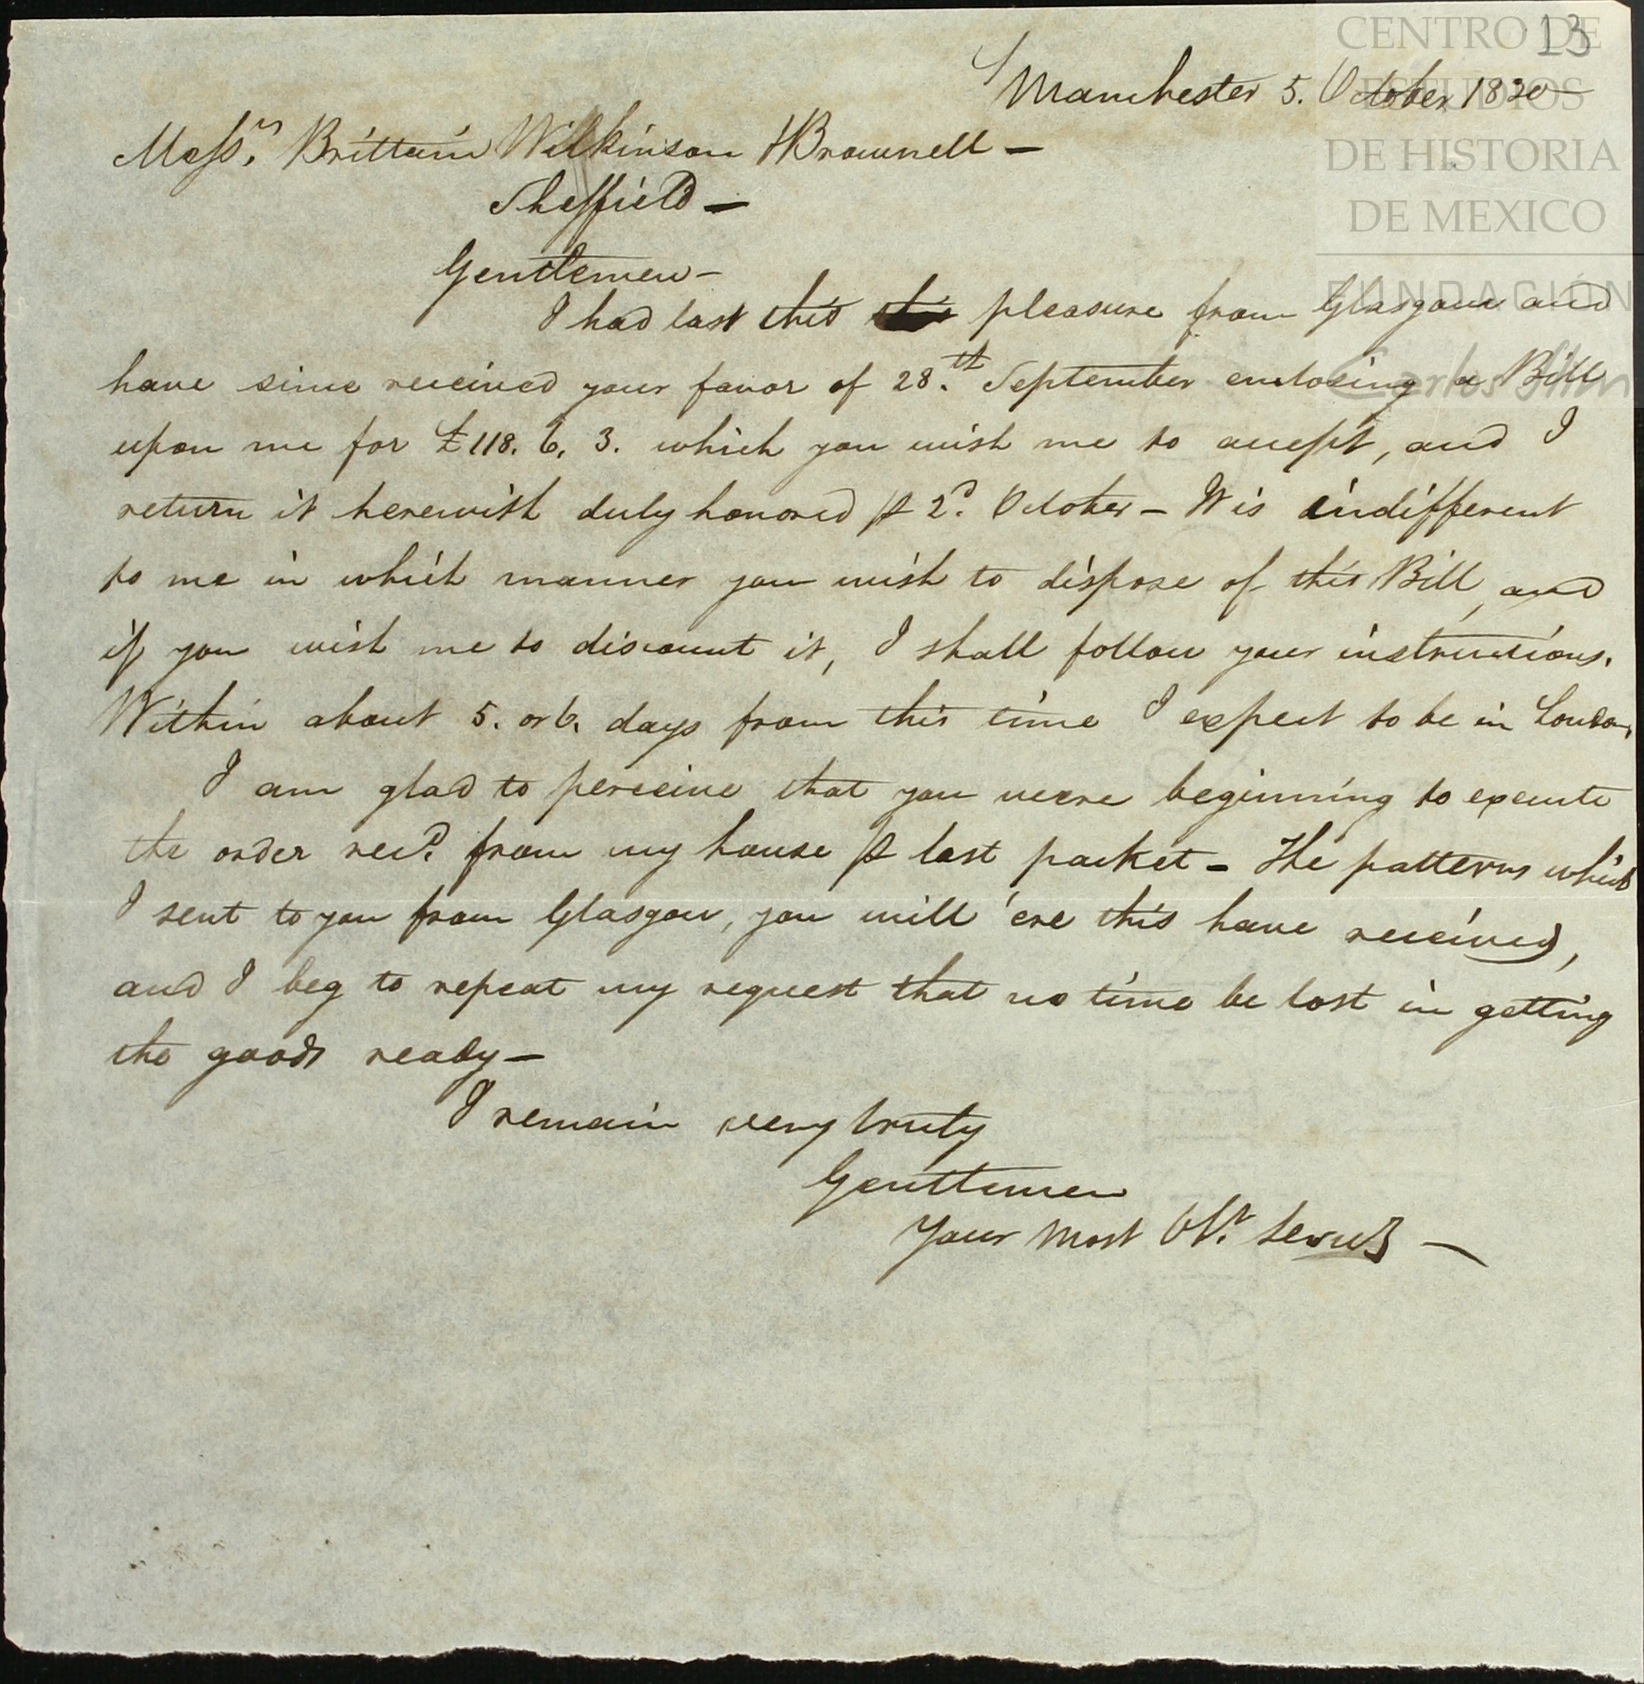 13
CENTRO DE
ESTUDIOS
DE HISTORIA
DE MEXICO
FUNDACIÓN
Carlos Slim
Manchester 5. October 1820
Messrs. Brittain Wilkinson & Brownell —
Sheffield —
Gentlemen —
I had last this pleasure from Glasgow and
have since received your favor of 28.th September enclosing a Bill
upon me for £118. 6. 3. which you wish me to accept, and I
return it herewith duly honored p 2d. October — It is indifferent
to me in which manner you wish to dispose of this Bill, and
if you wish me to discount it, I shall follow your instructions.
Within about 5. or 6. days from this time I expect to be in London.
I am glad to perceive that you were beginning to execute
the order recd. from my house p last packet — The patterns which
I sent to you from Glasgow, you will 'ere this have received,
and I beg to repeat my request that no time be lost in getting
the goods ready —
I remain very truly
Gentlemen
Your most Obt. Servt —